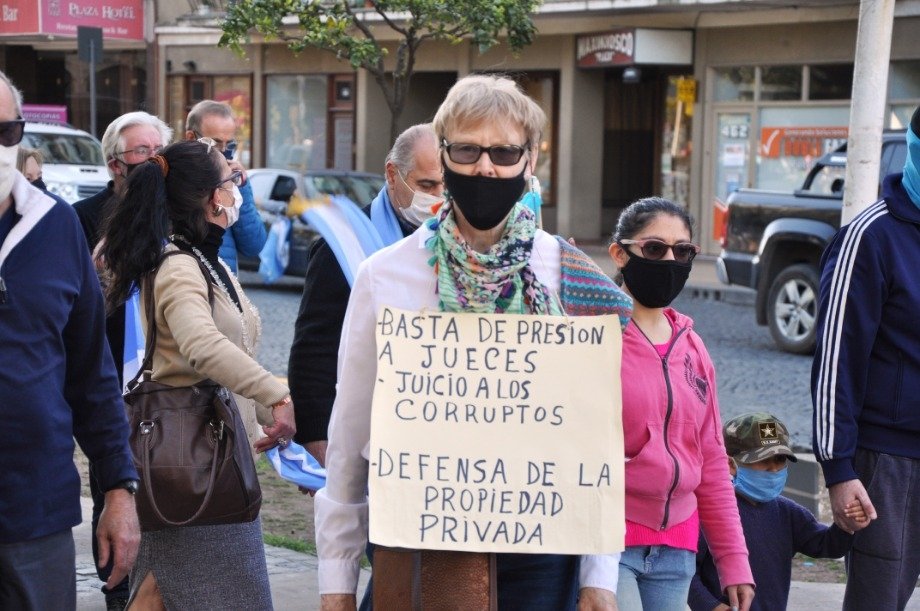 Bar
PLAZA HOTEL
MAXIMHOSCO
462
-BASTA DE PRESION
A JUECES
-JUICIO A LOS
CORRUPTOS
-DEFENSA DE LA
PROPIEDAD
PRIVADA
U.S. ARMY